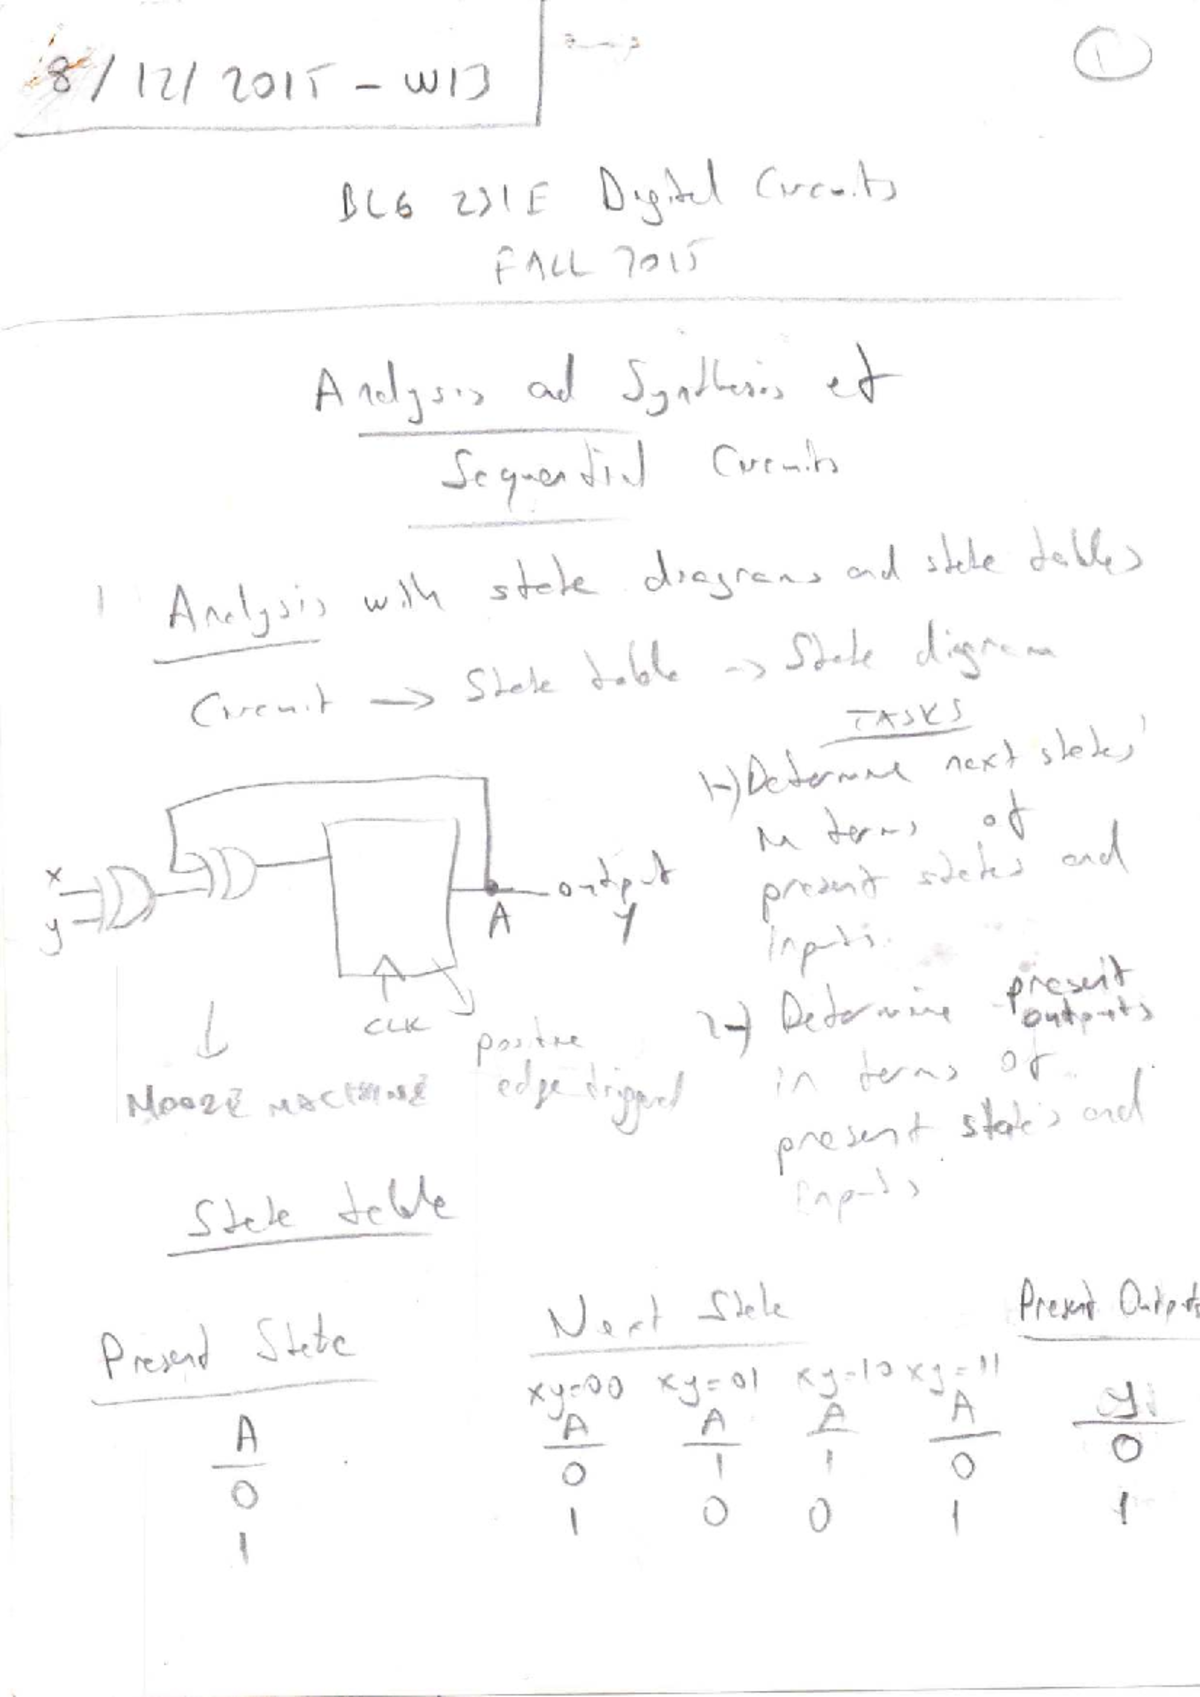 8/12/2015 - W13
1
BLG 231E Digital Circuits
FALL 2015
Analysis and Synthesis of
Sequential Circuits
1 Analysis with state diagrams and state tables
Circuit → State table → State diagram
TASKS
1-) Determine next states
in terms of
present states and
inputs.
2-) Determine present
outputs
in terms of
present states and
inputs
x
y
A
output
y
CLK
positive
edge triggered
MOORE MACHINE
State table
Present State
Next State
Present Outputs
xy=00 xy=01 xy=10 xy=11
A A A A A y
0 0 1 1 0 0
1 1 0 0 1 1